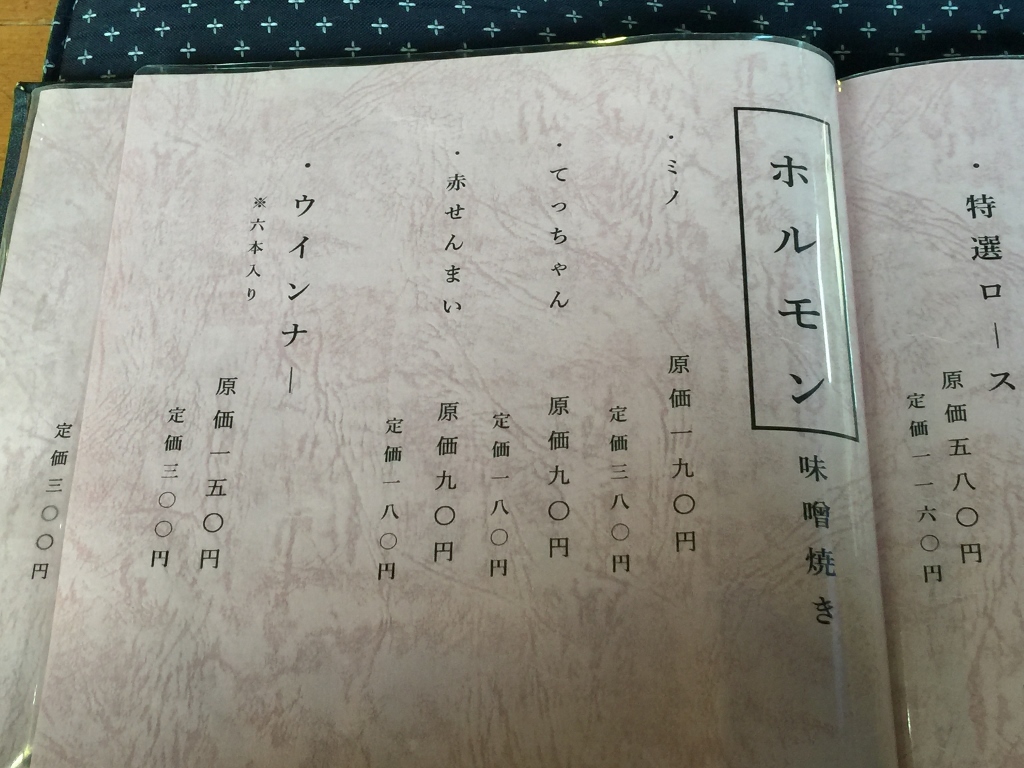 ・特選ロース
原価五八〇円
定価一一六〇円
ホルモン味噌焼き
・ミノ
原価一九〇円
定価三八〇円
・てっちゃん
原価九〇円
定価一八〇円
・赤せんまい
原価九〇円
定価一八〇円
・ウインナー
※六本入り
原価一五〇円
定価三〇〇円
定価三〇〇円